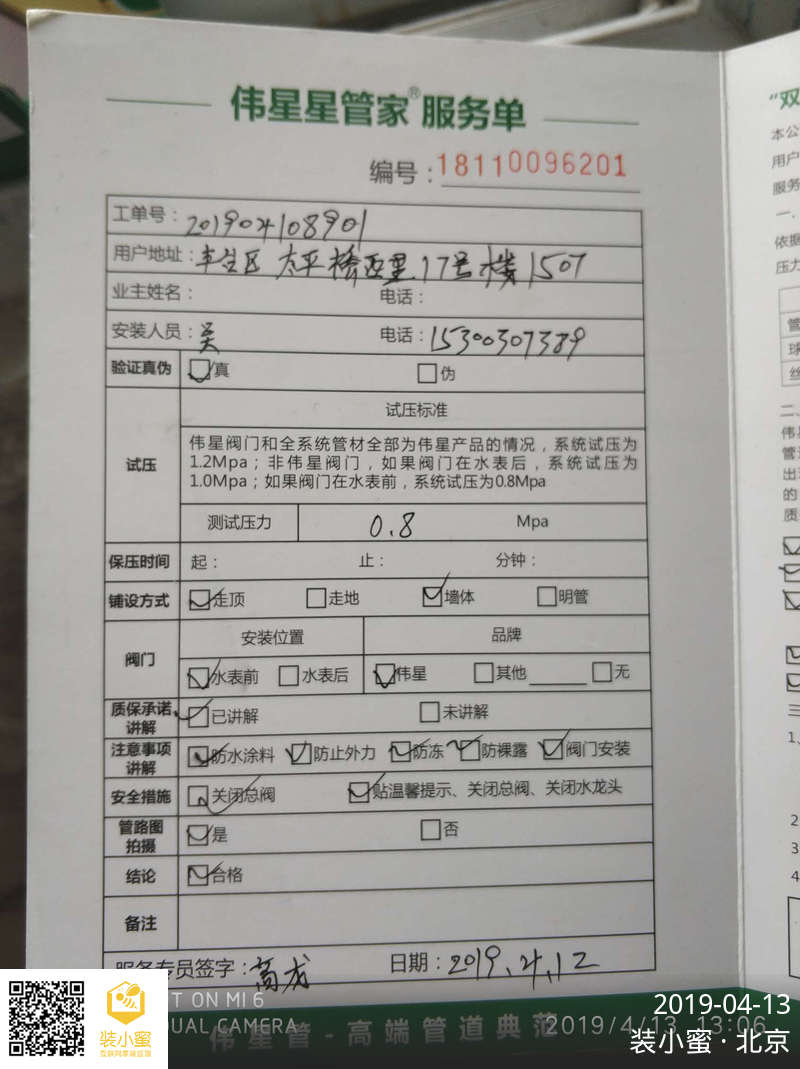 伟星星管家®服务单
编号：18110096201
工单号：201904108901
用户地址：丰台区 太平桥西里17号楼1507
业主姓名： 电话：
安装人员：吴 电话：15300307389
验证真伪 真 伪
试压 试压标准
伟星阀门和全系统管材全部为伟星产品的情况，系统试压为
1.2Mpa；非伟星阀门，如果阀门在水表后，系统试压为
1.0Mpa；如果阀门在水表前，系统试压为0.8Mpa
测试压力 0.8 Mpa
保压时间 起： 止： 分钟：
铺设方式 走顶 走地 墙体 明管
阀门 安装位置 品牌
水表前 水表后 伟星 其他 无
质保承诺讲解 已讲解 未讲解
注意事项讲解 防水涂料 防止外力 防冻 防裸露 阀门安装
安全措施 关闭总阀 贴温馨提示、关闭总阀、关闭水龙头
管路图拍摄 是 否
结论 合格
备注
服务专员签字： 日期：2019.4.12
伟星管-高端管道典范
"双
本公
用户
服务
一.
依据
压力
管
球
丝
二.
伟星
管道
出
的
质
三
1、
2
3
4
装小蜜
互联网家装监理
T ON MI 6
DUAL CAMERA
2019/4/13 13:06
2019-04-13
装小蜜·北京